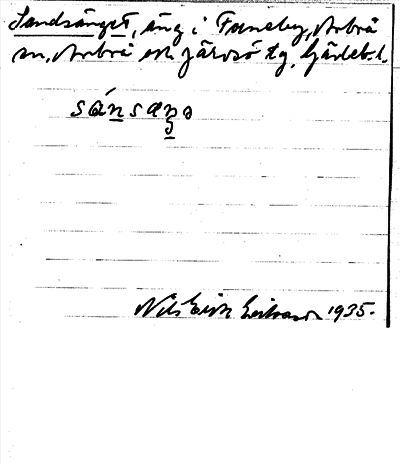 Sandsänget, äng i Forneby, Arbrå
sn, Arbrå och Järvsö tg, Gävleb. l.
sánsaŋə
Nils Erik Eriksson 1935.